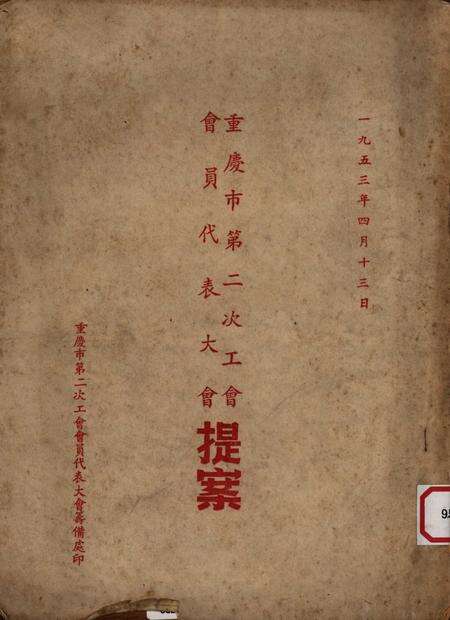 一九五三年四月十三日
重慶市第二次工會
會員代表大會
提案
重慶市第二次工會會員代表大會籌備處印
95